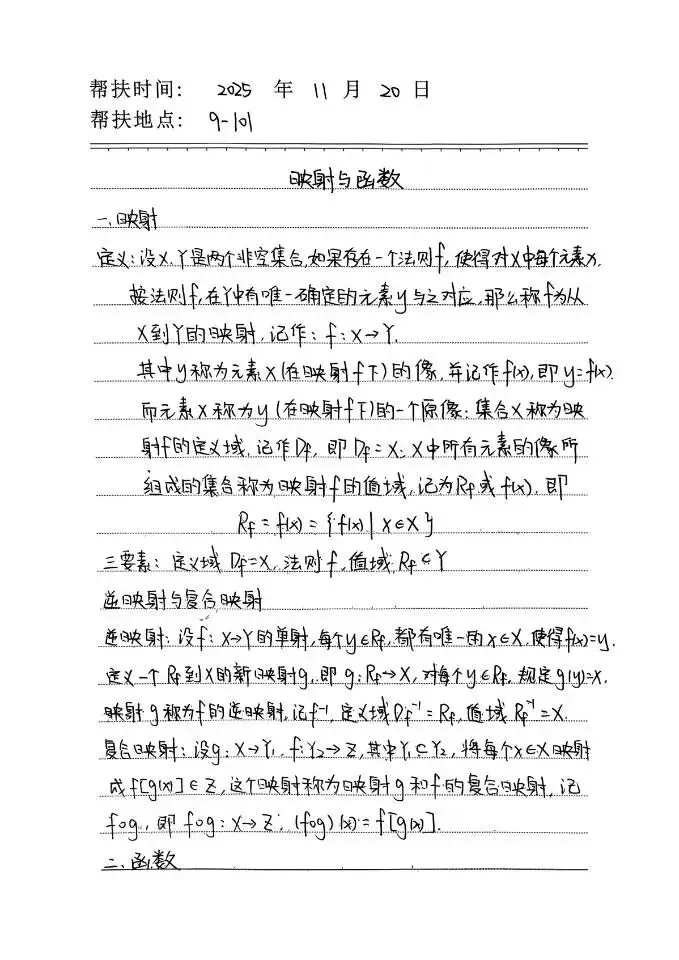 帮扶时间： 2025 年 11 月 20 日
帮扶地点： 9-101
映射与函数
一、映射
定义：设X、Y是两个非空集合,如果存在一个法则f,使得对X中每个元素x,
按法则f,在Y中有唯一确定的元素y与之对应,那么称f为从
X到Y的映射,记作：f：X→Y.
其中y称为元素x(在映射f下)的像,并记作f(x),即y=f(x).
而元素x称为y(在映射f下)的一个原像;集合X称为映
射f的定义域,记作Df,即Df=X;X中所有元素的像所
组成的集合称为映射f的值域,记为Rf或f(x),即
Rf=f(x)={f(x)|x∈X}
三要素：定义域Df=X,法则f,值域Rf⊂Y
逆映射与复合映射
逆映射：设f：X→Y的单射,每个y∈Rf,都有唯一的x∈X,使得f(x)=y.
定义一个Rf到X的新映射g,即g：Rf→X,对每个y∈Rf,规定g(y)=x,
映射g称为f的逆映射,记f⁻¹,定义域Df⁻¹=Rf,值域Rf⁻¹=X.
复合映射：设g：X→Y₁,f：Y₂→Z,其中Y₁⊂Y₂,将每个x∈X映射
成f[g(x)]∈Z,这个映射称为映射g和f的复合映射,记
fog,即fog：X→Z,(fog)(x)=f[g(x)].
二、函数